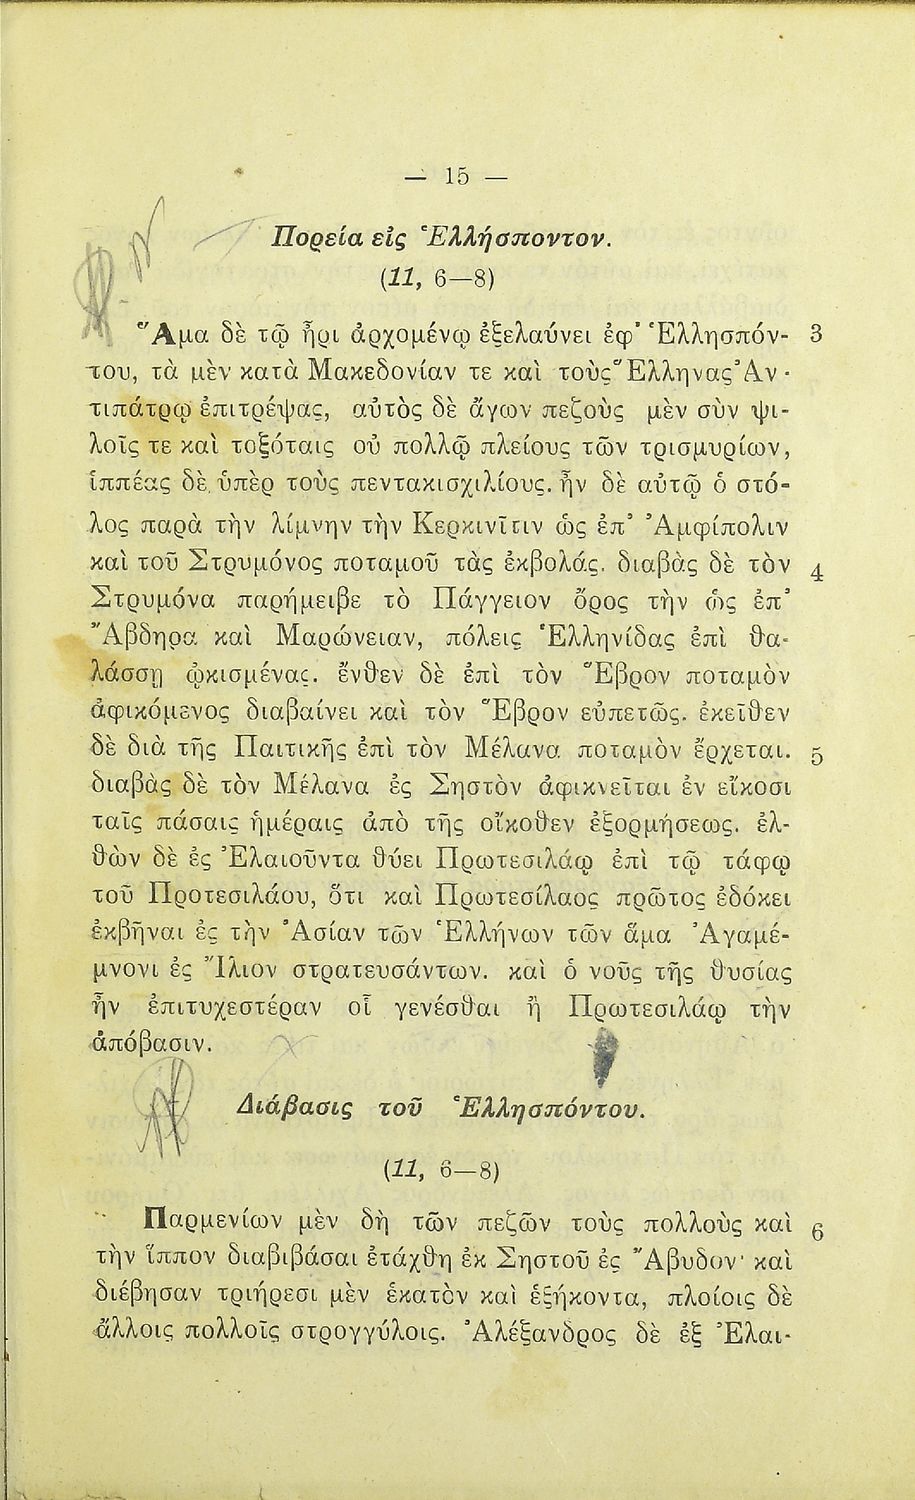 — 15 —
Πορεία εἰς Ἑλλήσποντον.
(11, 6—8)
Ἅμα δὲ τῷ ἦρι ἀρχομένῳ ἐξελαύνει ἐφ' Ἑλλησπόν- 3
του, τὰ μὲν κατὰ Μακεδονίαν τε καὶ τοὺς Ἕλληνας Ἀν-
τιπάτρῳ ἐπιτρέψας, αὐτὸς δὲ ἄγων πεζοὺς μὲν σὺν ψι-
λοῖς τε καὶ τοξόταις οὐ πολλῷ πλείους τῶν τρισμυρίων,
ἱππέας δὲ ὑπὲρ τοὺς πεντακισχιλίους. ἦν δὲ αὐτῷ ὁ στό-
λος παρὰ τὴν λίμνην τὴν Κερκινῖτιν ὡς ἐπ' Ἀμφίπολιν
καὶ τοῦ Στρυμόνος ποταμοῦ τὰς ἐκβολάς. διαβὰς δὲ τὸν 4
Στρυμόνα παρήμειβε τὸ Πάγγειον ὄρος τὴν ὡς ἐπ'
Ἄβδηρα καὶ Μαρώνειαν, πόλεις Ἑλληνίδας ἐπὶ θα-
λάσσῃ ᾠκισμένας. ἔνθεν δὲ ἐπὶ τὸν Ἕβρον ποταμὸν
ἀφικόμενος διαβαίνει καὶ τὸν Ἕβρον εὐπετῶς. ἐκεῖθεν
δὲ διὰ τῆς Παιτικῆς ἐπὶ τὸν Μέλανα ποταμὸν ἔρχεται. 5
διαβὰς δὲ τὸν Μέλανα ἐς Σηστὸν ἀφικνεῖται ἐν εἴκοσι
ταῖς πάσαις ἡμέραις ἀπὸ τῆς οἴκοθεν ἐξορμήσεως. ἐλ-
θὼν δὲ ἐς Ἐλαιοῦντα θύει Πρωτεσιλάῳ ἐπὶ τῷ τάφῳ
τοῦ Προτεσιλάου, ὅτι καὶ Πρωτεσίλαος πρῶτος ἐδόκει
ἐκβῆναι ἐς τὴν Ἀσίαν τῶν Ἑλλήνων τῶν ἅμα Ἀγαμέ-
μνονι ἐς Ἴλιον στρατευσάντων. καὶ ὁ νοῦς τῆς θυσίας
ἦν ἐπιτυχεστέραν οἷ γενέσθαι ἢ Πρωτεσιλάῳ τὴν
ἀπόβασιν.
Διάβασις τοῦ Ἑλλησπόντου.
(11, 6—8)
Παρμενίων μὲν δὴ τῶν πεζῶν τοὺς πολλοὺς καὶ 6
τὴν ἵππον διαβιβάσαι ἐτάχθη ἐκ Σηστοῦ ἐς Ἄβυδον· καὶ
διέβησαν τριήρεσι μὲν ἑκατὸν καὶ ἑξήκοντα, πλοίοις δὲ
ἄλλοις πολλοῖς στρογγύλοις. Ἀλέξανδρος δὲ ἐξ Ἐλαι-